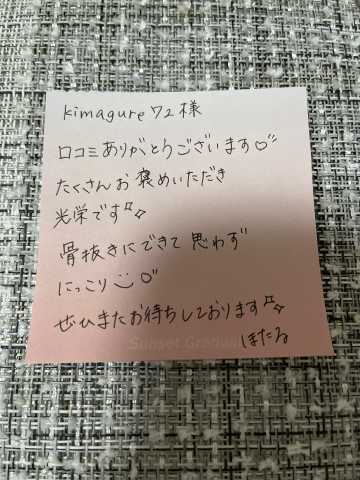 kimagure72様
口コミありがとうございます♡
たくさんお褒めいただき
光栄です✨
骨抜きにできて思わず
にっこり☺♡
ぜひまたお待ちしております✨
Sunset Gradua
ほたる